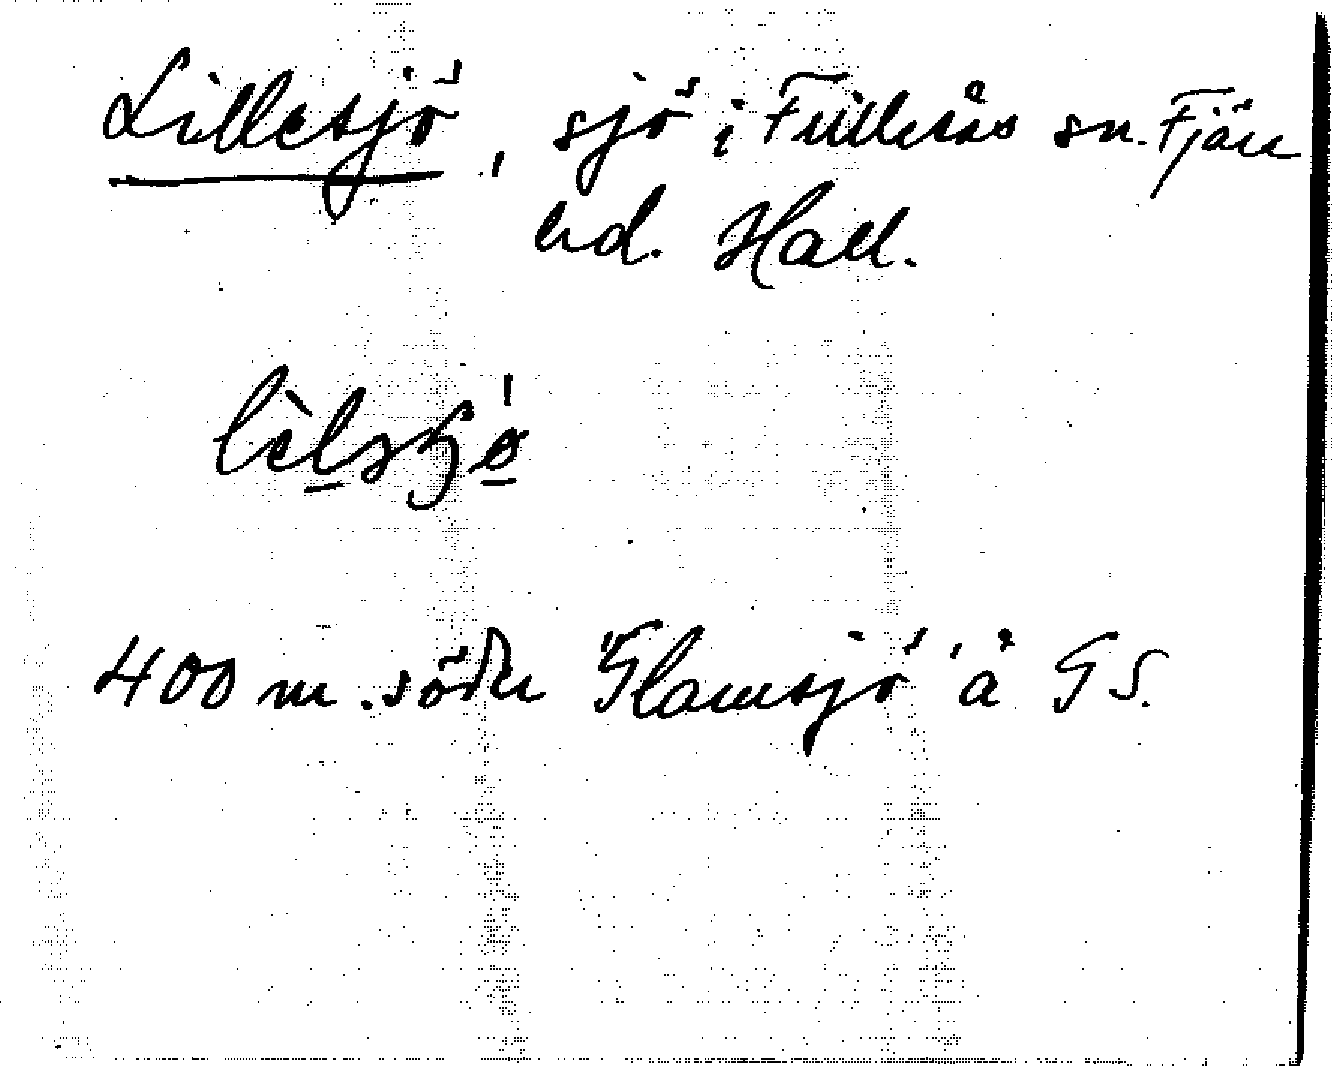 Lillesjö, sjö i Fülleås sn. Fjäre
hd. Hall.
lèlsʒø
400 m. söder "Flamsjö" å GS.